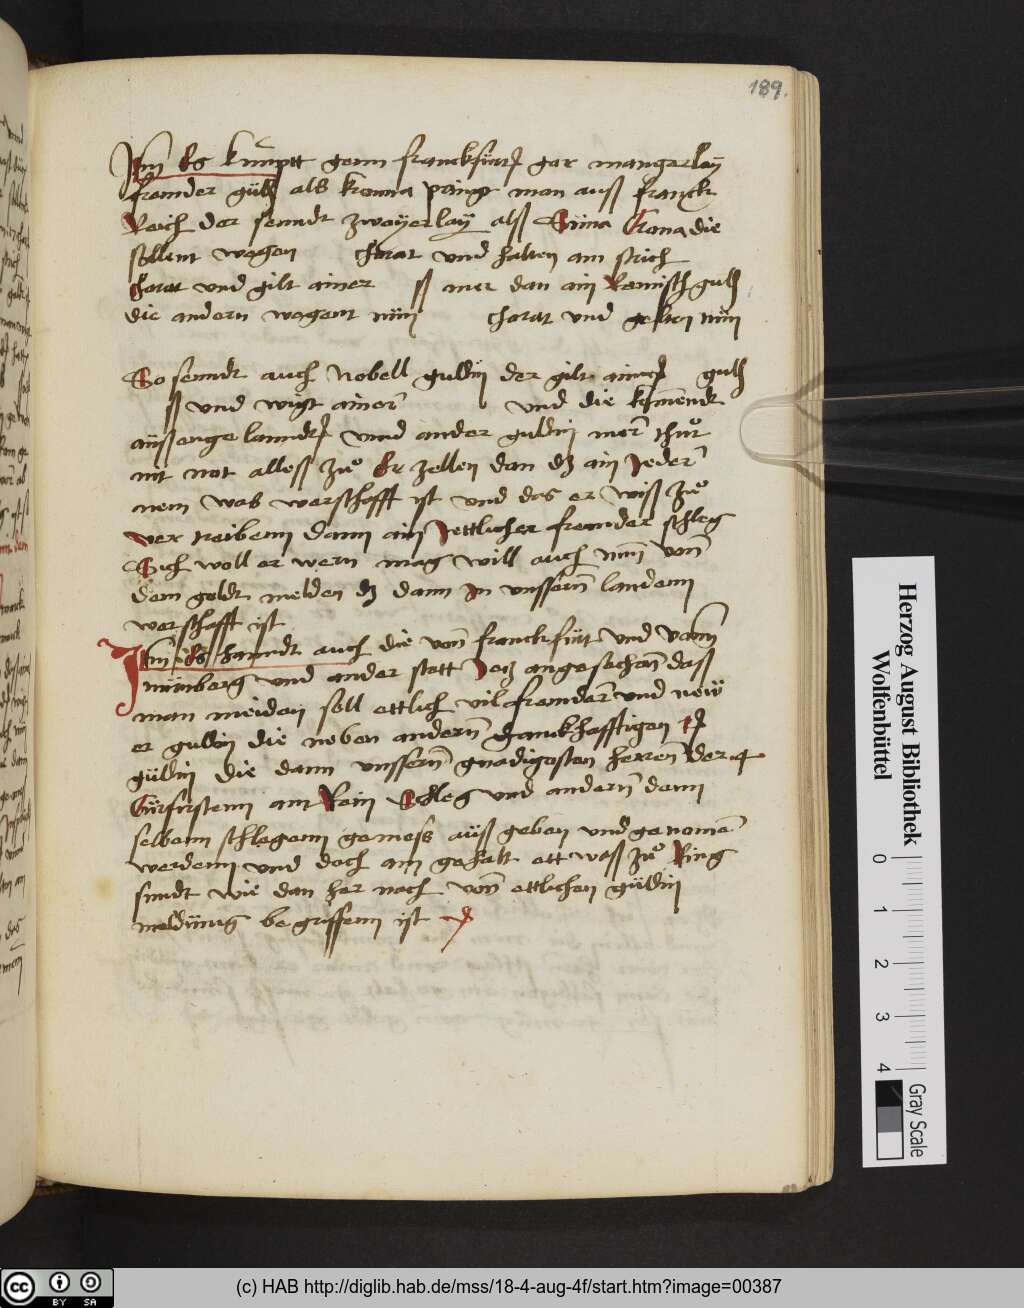 189.
Jtm Es kumptt genn franckfurt gar mangerlaÿ
fremder guld als kronna pringt man auß franck
Reich der senndt zwayerlaÿ alß Suna Crona die
sollent wegen charat vnd halten am strich
charat vnd gilt ainer ß mer dan ain Reinisch guld
die andern wegent nún charat vnd gelten nún
So senndt auch Nobell guldin der gilt ainer guld
ß vnd wigt ainer vnd die komendt
auß enge lanndt vnnd ander guldin mer thut
nit not alleß zů Er zellen dan dz ain Jeder
nem was werschafft ist vnd das er wiß zů
ver treibenn dann ain Jettlicher fremder schleg
Sich woll er wern mag will auch nun von
dem geldt melden dz dann Jn vnssern landenn
werschafft ist
Jtm Es hanndt auch die von franckfurt vnd vonn
nurnberg vnd ander stett Jetz angesechen daß
man meiden soll ettlich vil fremder vnd new
er guldin die neben andern ganckhafftigen
guldin die dann vnssern gnadigosten herren der 4
Curfurstenn am Rein schleg vnd andern denn
selbenn schlegenn gemess auß geben vnd genomen
werdenn vnd doch am gehalt ett waß zů Ring
sindt wie dan her nach von ettlichen guldin
meldung be griffenn ist
Herzog August Bibliothek
Wolfenbüttel
0 1 2 3 4
Gray Scale
(c) HAB http://diglib.hab.de/mss/18-4-aug-4f/start.htm?image=00387
cc BY SA